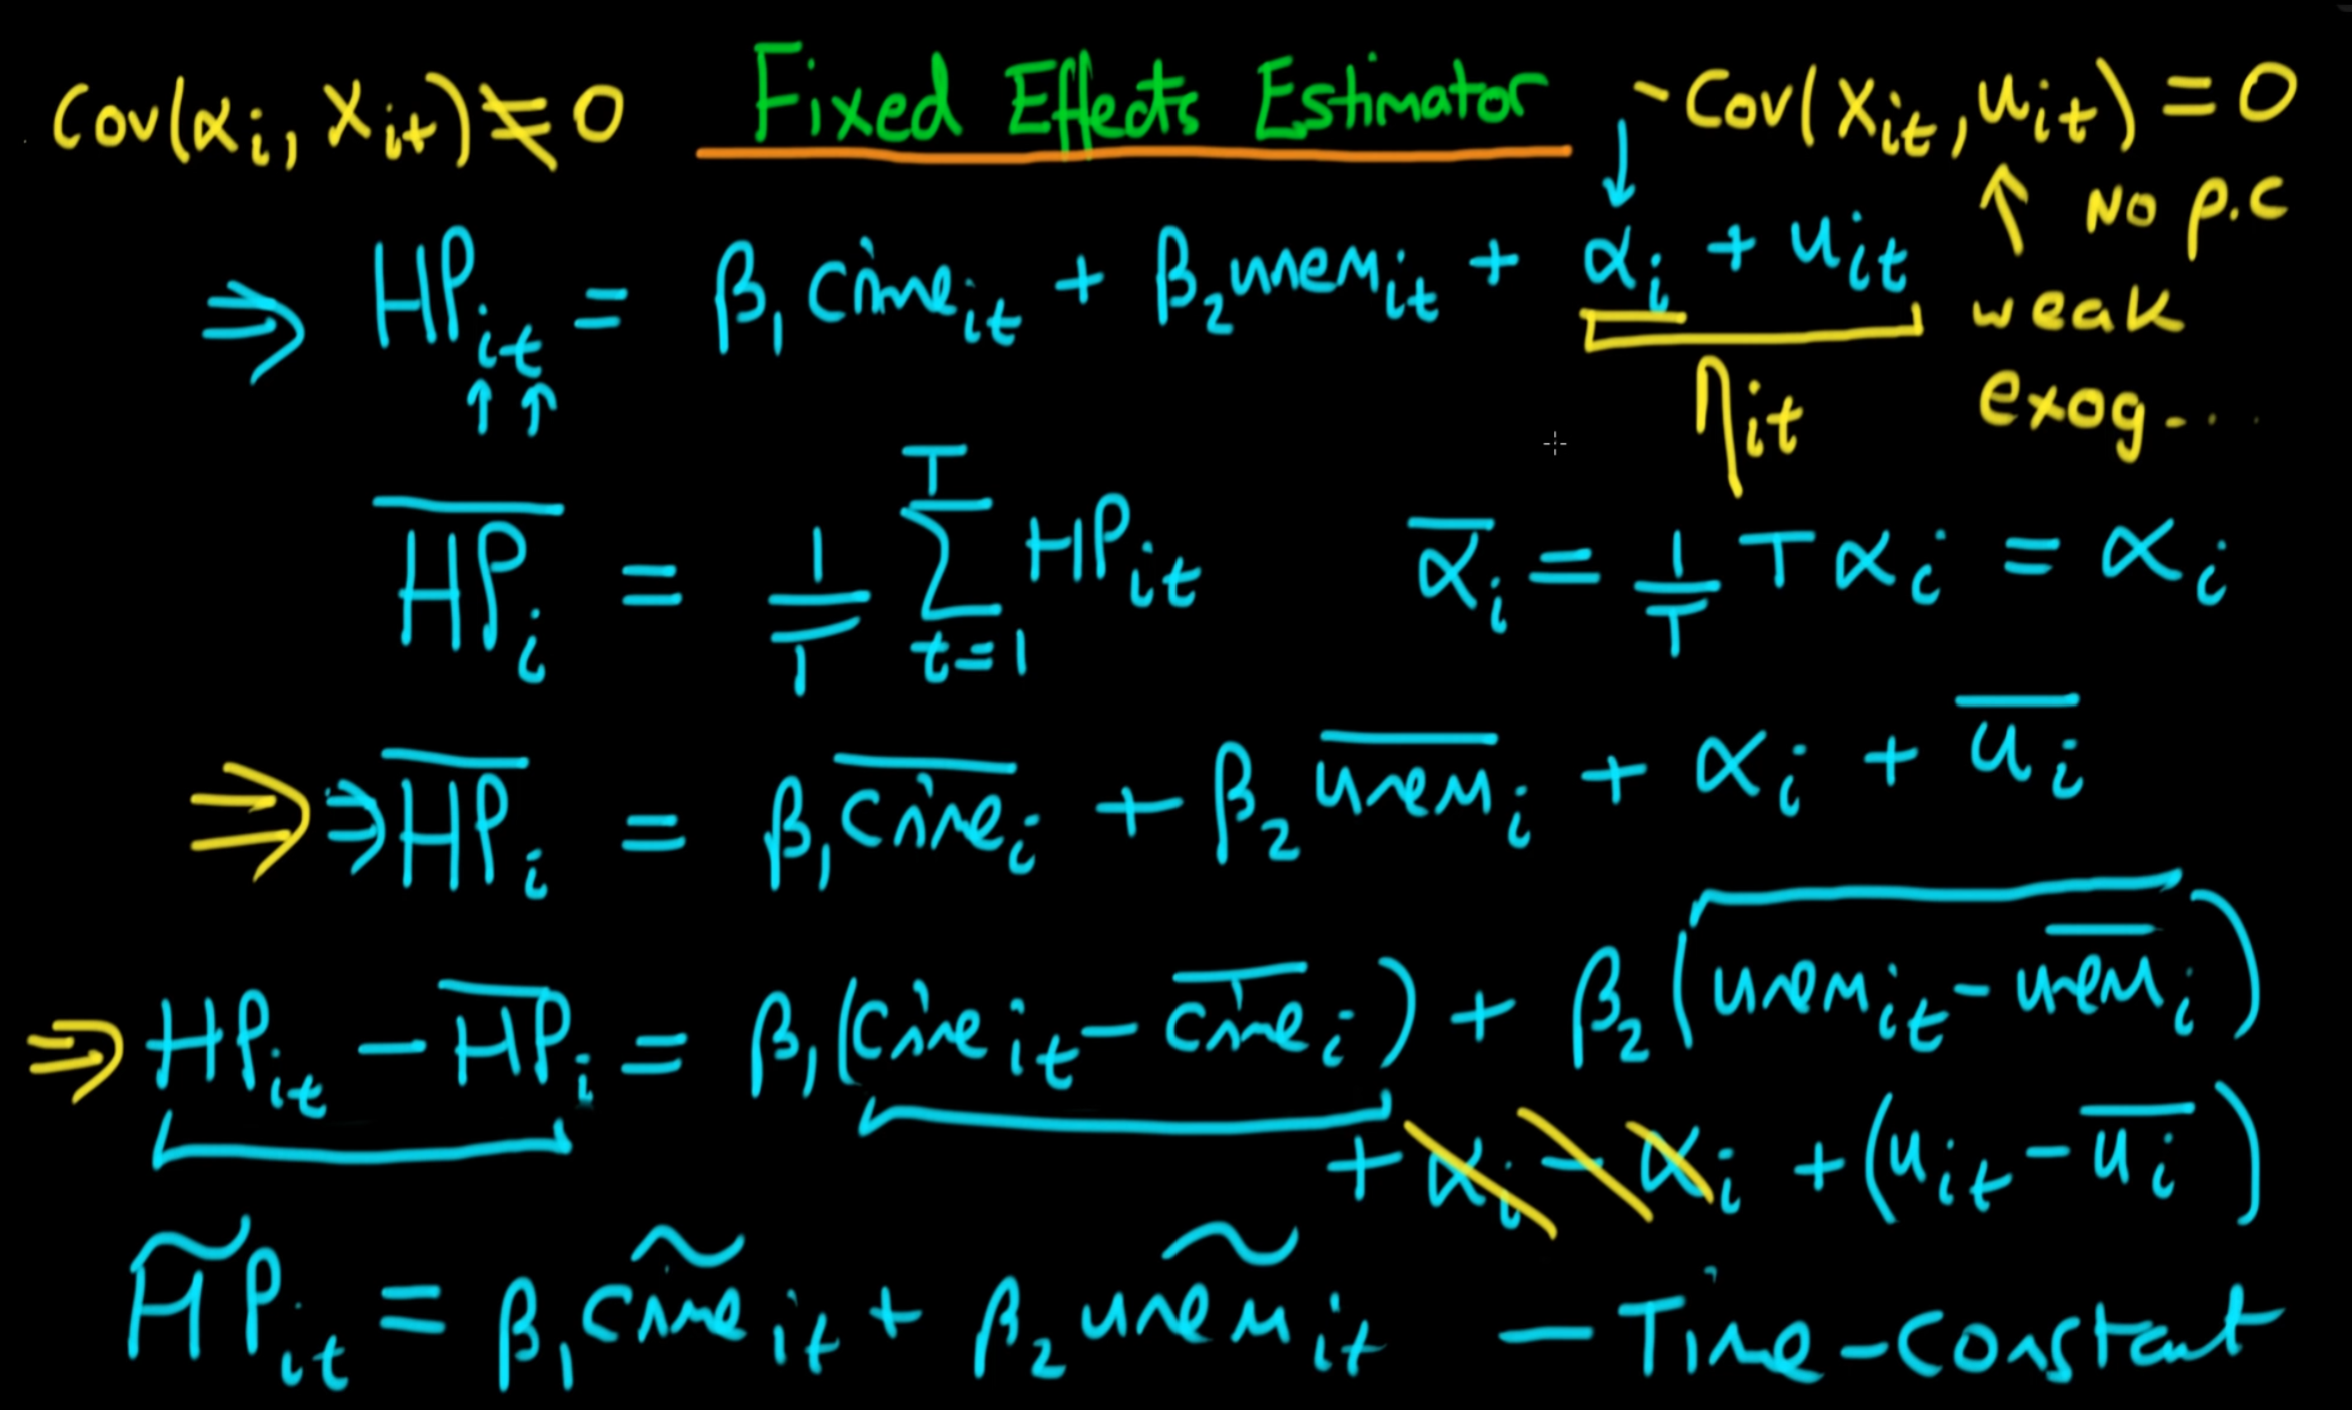 Cov(αi, Xit) ≠ 0
Fixed Effects Estimator
- Cov(Xit, uit) = 0
No p.c
⇒ HPit = β1 crimeit + β2 unemit + αi + uit
weak
ηit
exog...
H̅P̅i = 1/T ∑ T t=1 HPit
α̅i = 1/T T αi = αi
⇒ ⇒ H̅P̅i = β1 c̅r̅i̅m̅e̅i + β2 u̅n̅e̅m̅i + αi + u̅i
⇒ HPit - H̅P̅i = β1(crimeit - c̅r̅i̅m̅e̅i) + β2(unemit - u̅n̅e̅m̅i)
+ αi - αi + (uit - u̅i)
H̃Pit = β1 crim̃eit + β2 unem̃it
- Time-constant